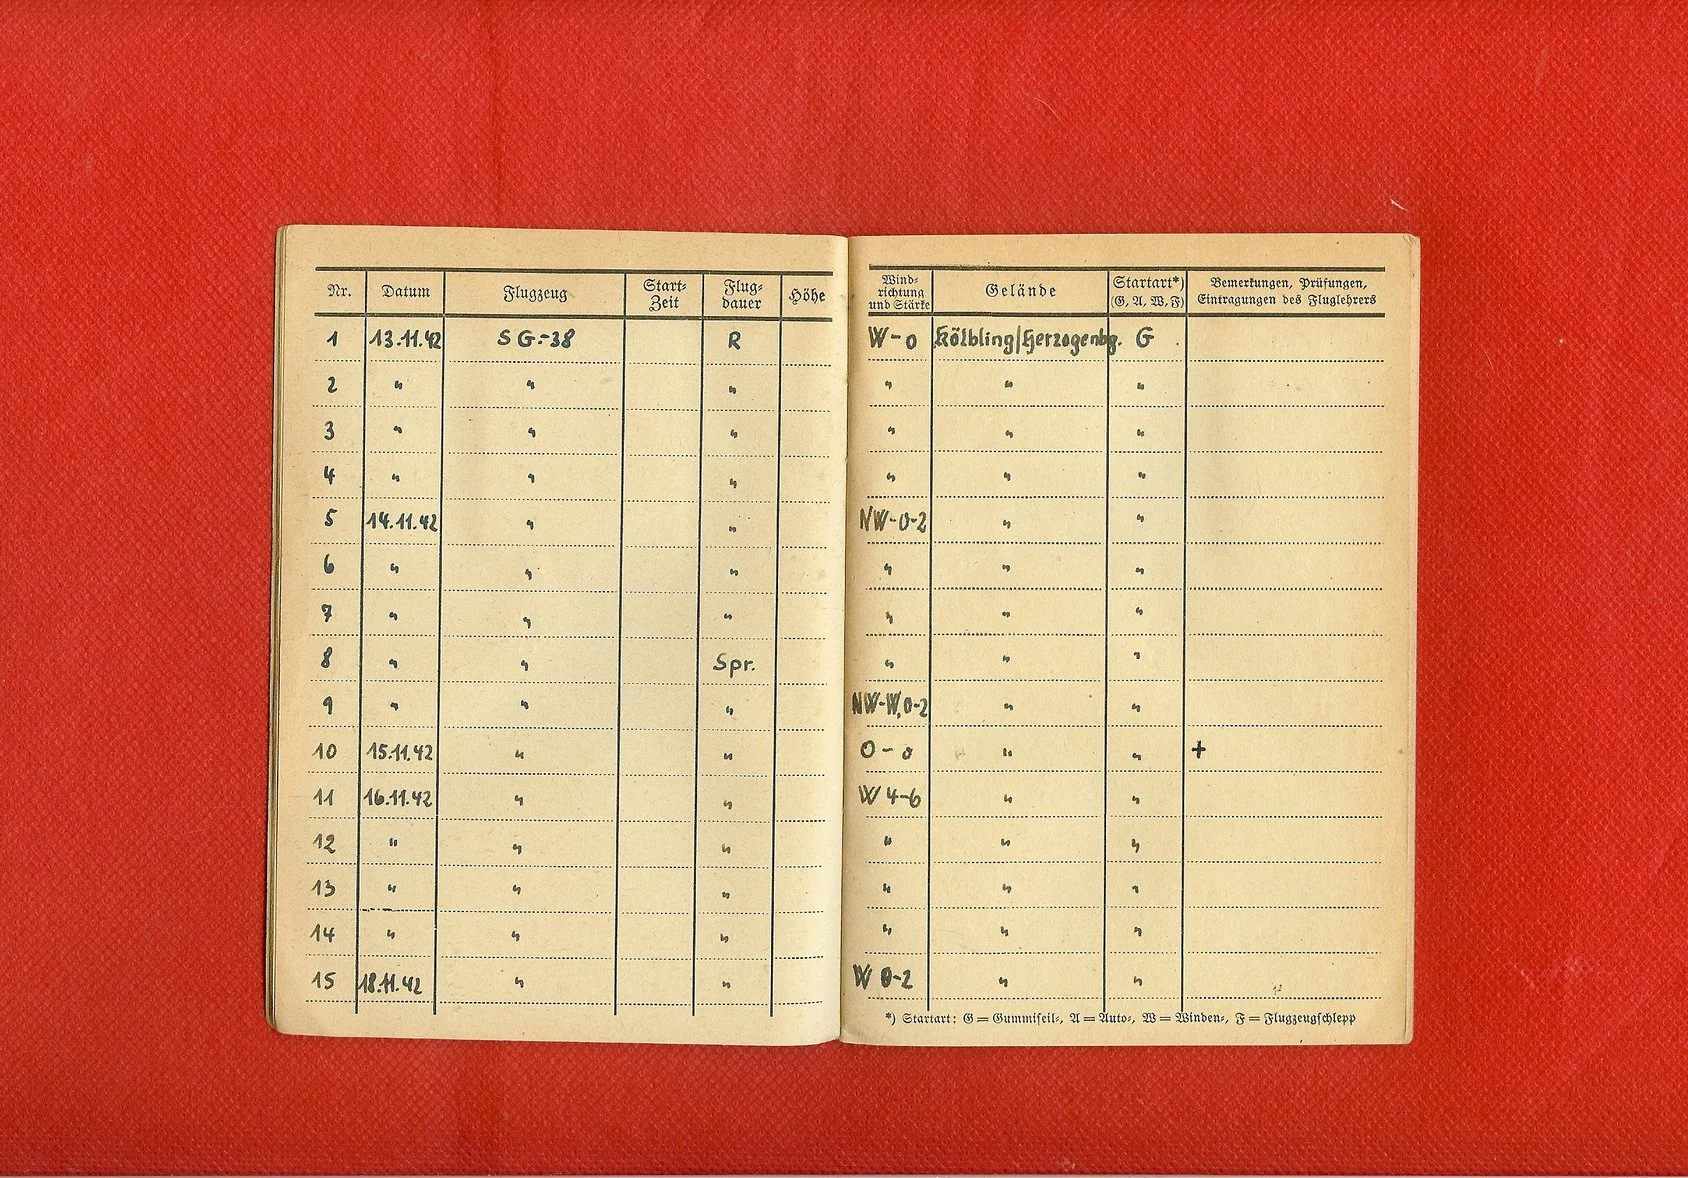 Nr. Datum Flugzeug Start-Zeit Flug-dauer Höhe Wind-richtung und Stärke Gelände Startart*) (G, A, W, F) Bemerkungen, Prüfungen, Eintragungen des Fluglehrers
1 13.11.42 SG.-38 R W-0 Kölbling/Herzogenbg. G
2 " " " " " "
3 " " " " " "
4 " " " " " "
5 14.11.42 " " NW-0-2 " "
6 " " " " " "
7 " " " " " "
8 " " Spr. " " "
9 " " " NW-W,0-2 " "
10 15.11.42 " " O-0 " " +
11 16.11.42 " " W 4-6 " "
12 " " " " " "
13 " " " " " "
14 " " " " " "
15 18.11.42 " " W 0-2 " "
*) Startart: G = Gummiseil-, A = Auto-, W = Winden-, F = Flugzeugschlepp